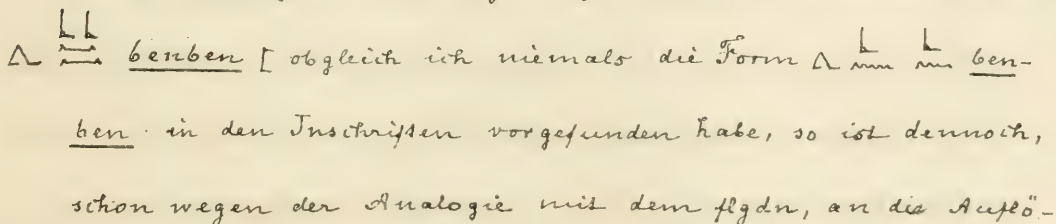 𓂻 𓃀𓃀𓈖𓈖 benben [ obgleich ich niemals die Form 𓂻 𓃀𓈖 𓃀𓈖 ben-
ben in den Inschriften vorgefunden habe, so ist dennoch,
schon wegen der Analogie mit dem flgdn, an die Auflö-